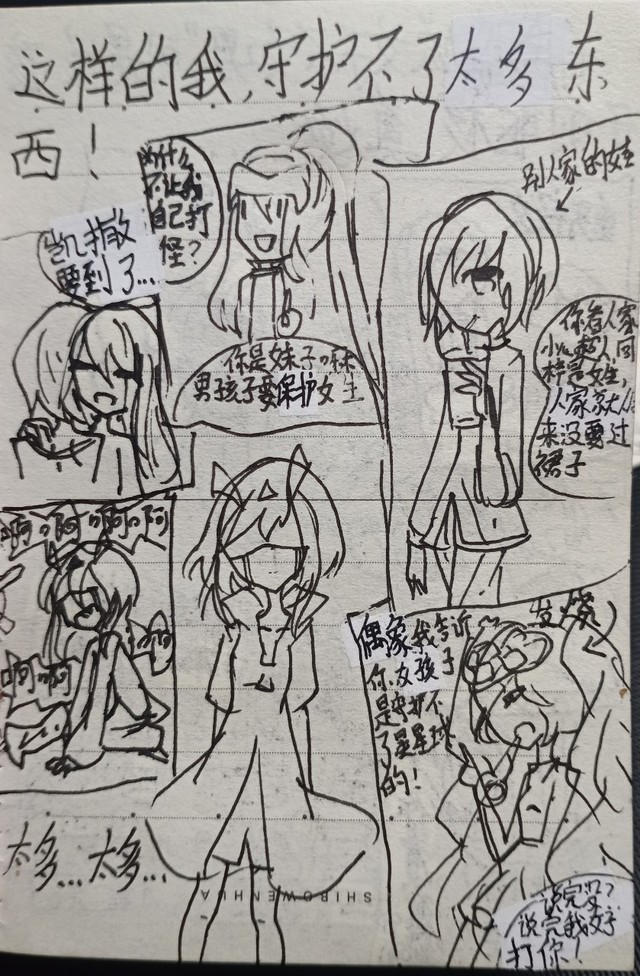 这样的我,守护不了太多东
西!
为什么
不让我
自己打
怪?
凯撒
要到了...
你是妹子嘛
男孩子要保护女生
别人家的女生
你看人家
小超人同
样是女生,
人家家大人
来没要过
裙子
啊啊啊啊
啊啊
啊啊
偶像我告诉
你女孩子
是守护不
了星星球
的!
发烧
太多...太多...
SHIBOWENHUA
说完没?
说完我好
打你!